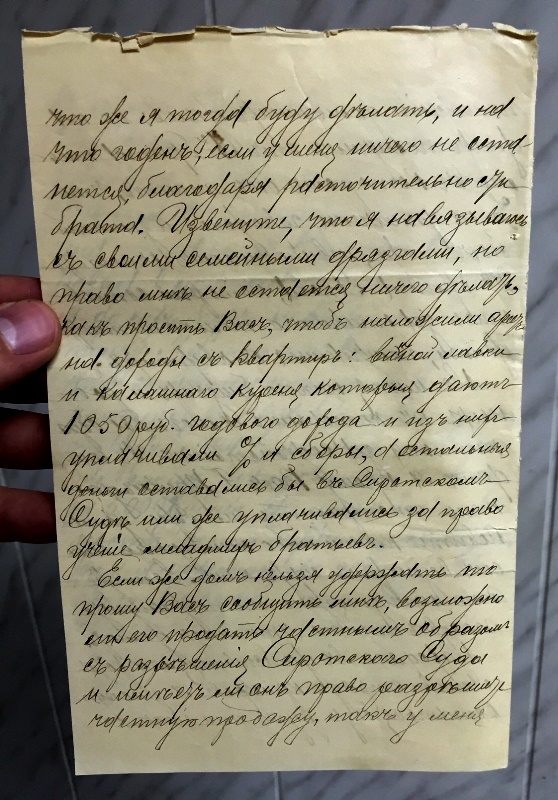 что же я тогда буду дѣлать, и на
что годенъ, если у меня ничего не оста-
нется, благодаря расточительности
брата. Извените, что я навязываюсь
съ своими семейными дрязгами, но
право мнѣ не остается ничего дѣлать,
какъ просить Васъ, чтобъ наложили арестъ
на доходы съ квартиръ: винной лавки
и калашнаго куреня которыя даютъ
1050 руб. годового дохода и изъ нихъ
уплачивали % и сборы, а остальныя
деньги оставались бы въ Сиротскомъ
Судѣ или же уплачивались за право
ученіе младшихъ братьевъ.
Если же домъ нельзя удержать то
прошу Васъ сообщить мнѣ, возможно
ли его продать частнымъ образомъ
съ разрѣшенія Сиротского Суда
и имѣетъ ли онъ право разрѣшить
частную продажу, такъ у меня